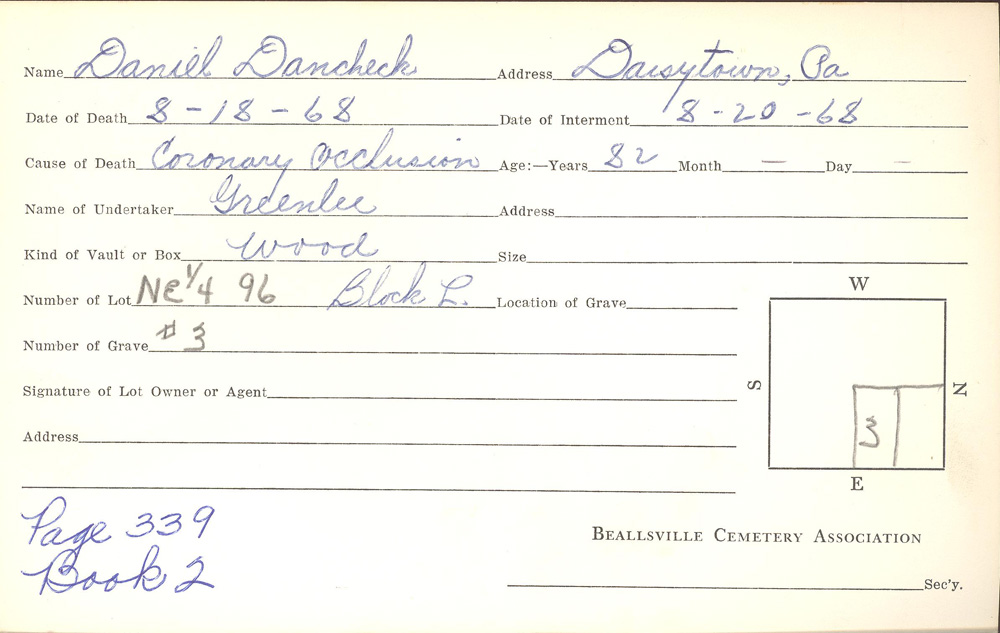 Name Daniel Dancheck Address Daisytown, Pa
Date of Death 8-18-68 Date of Interment 8-20-68
Cause of Death Coronary Occlusion Age:—Years 82 Month — Day —
Name of Undertaker Greenlee Address
Kind of Vault or Box Wood Size
Number of Lot NE 1/4 96 Block L. Location of Grave
Number of Grave #3
Signature of Lot Owner or Agent
Address
W
S
N
3
E
Page 339
Book 2
BEALLSVILLE CEMETERY ASSOCIATION
Sec'y.